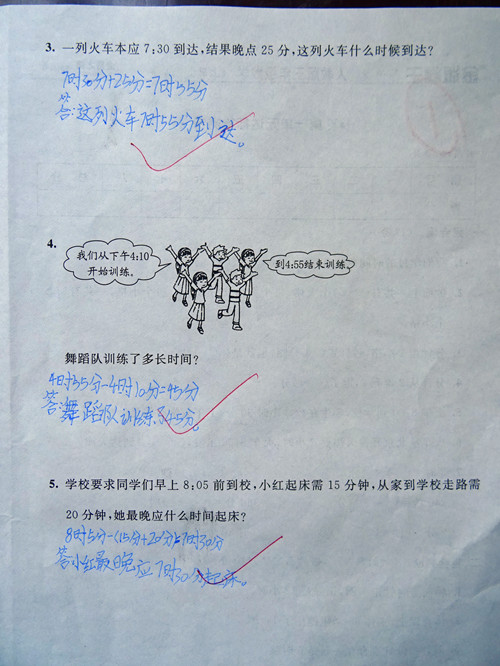 3. 一列火车本应 7:30 到达,结果晚点 25 分,这列火车什么时候到达?
7时30分+25分=7时55分
答:这列火车7时55分到达。
4.
我们从下午4:10
开始训练。
到4:55结束训练。
舞蹈队训练了多长时间?
4时55分-4时10分=45分
答:舞蹈队训练了45分。
5. 学校要求同学们早上 8:05 前到校,小红起床需 15 分钟,从家到学校走路需
20 分钟,她最晚应什么时间起床?
8时5分-(15分+20分)=7时30分
答小红最晚应7时30分起床。